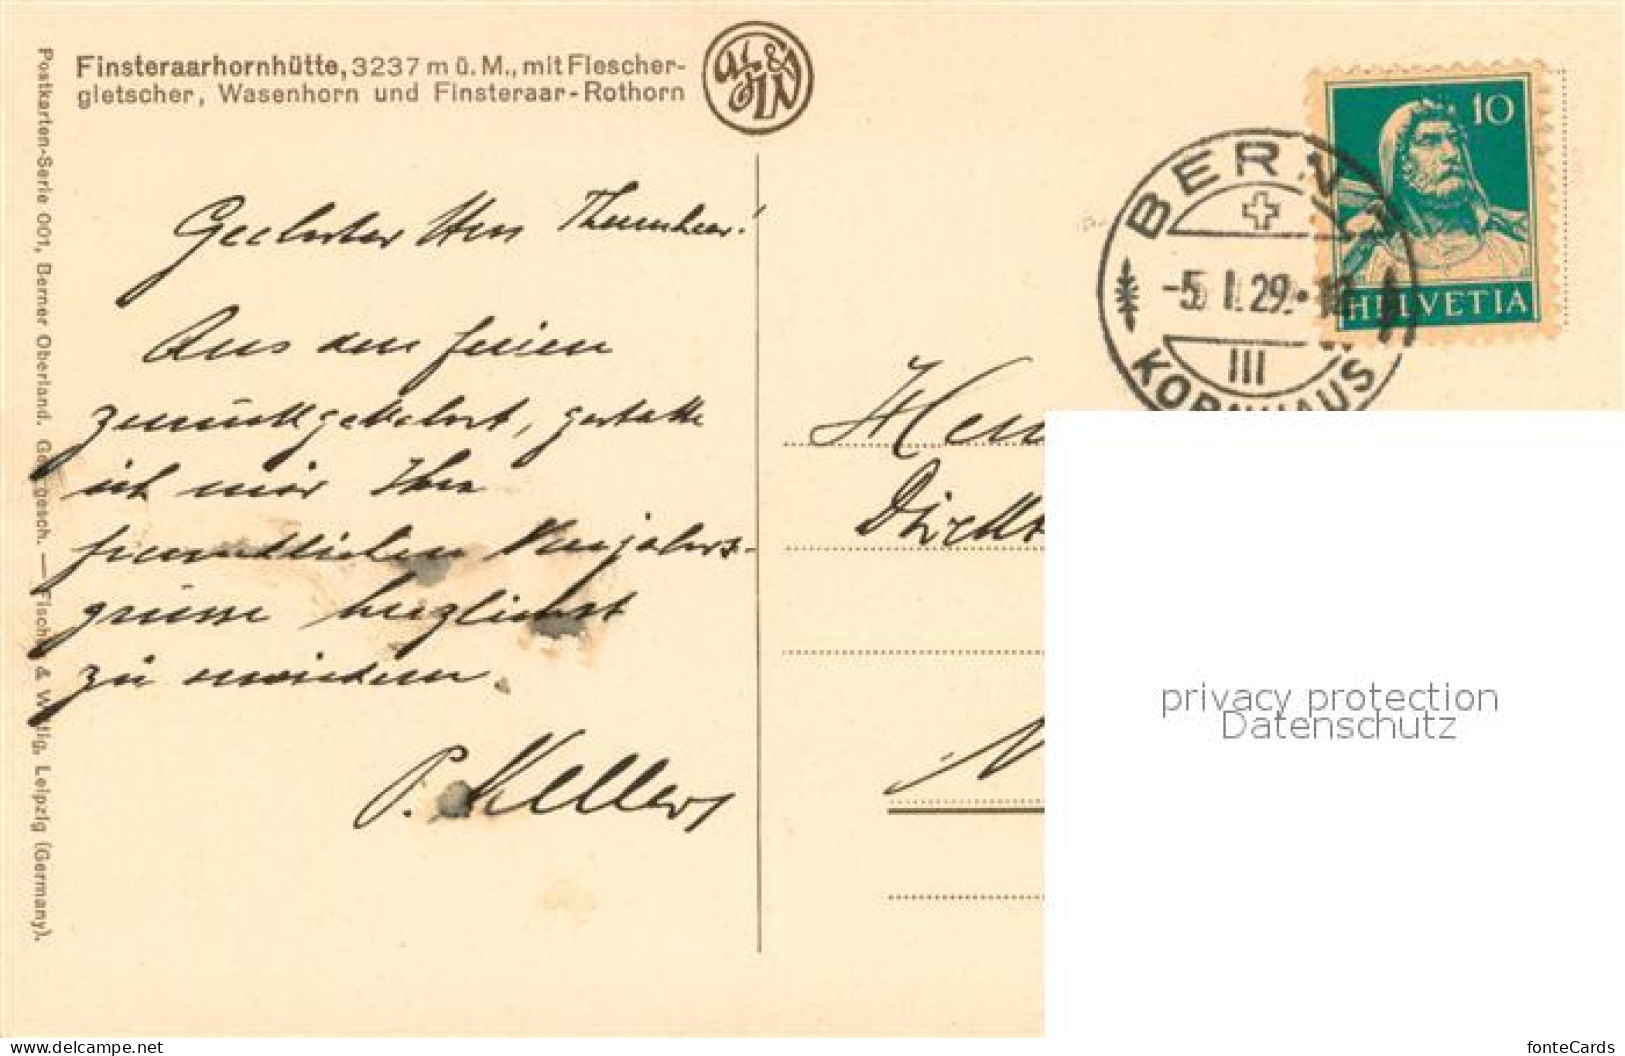 Finsteraarhornhütte, 3237 m ü. M., mit Fiescher-
gletscher, Wasenhorn und Finsteraar-Rothorn
Postkarten-Serie 001, Berner Oberland. Ges. gesch. — Fischer & Wittig, Leipzig (Germany).
Geehrter Herr Thurnheer!
Aus den Ferien
zurückgekehrt, gestatte
ich mir Ihre
freundlichen Neujahrs-
grüsse herzlichst
zu erwidern.
P. Keller
10
HELVETIA
BERN
-5. I. 29.
III
KORNHAUS
Herrn
Direktor
privacy protection
Datenschutz
www.delcampe.net
fonteCards